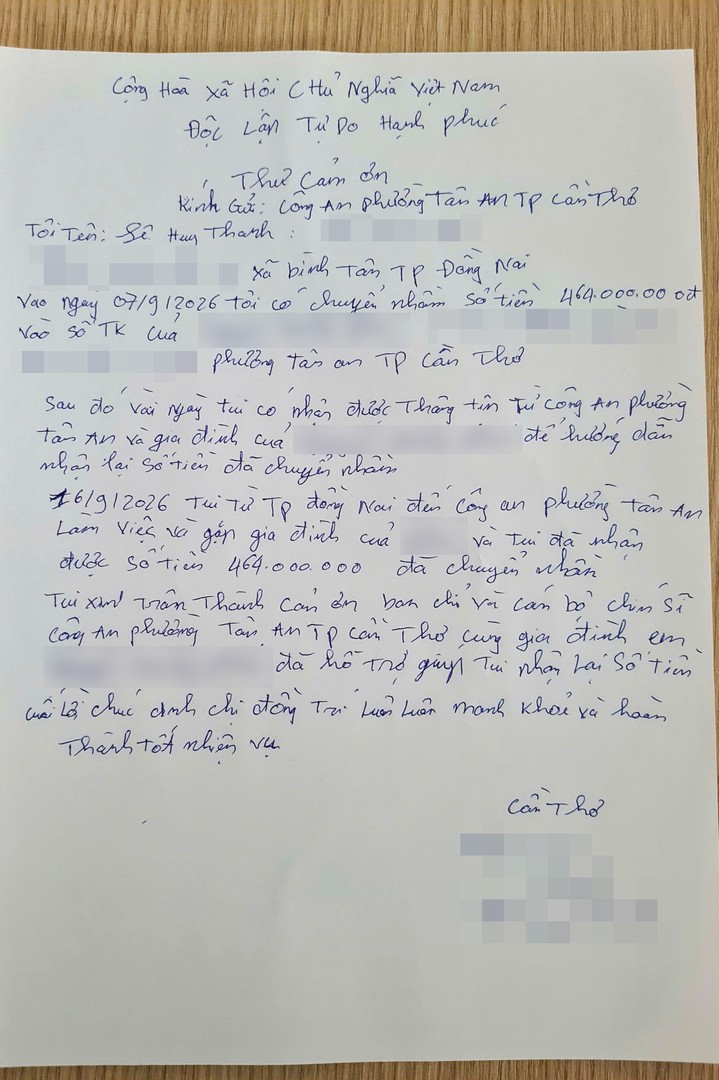 Cộng Hoà Xã Hội Chủ Nghĩa Việt Nam
Độc Lận Tự Do Hạnh phúc
Thư Cảm ơn
Kính Gửi: Công An phường Tân An TP Cần Thơ
Tôi Tên: Lê Huy Thanh :
xã bình Tân TP Đồng Nai
Vào ngày 07/9/2026 tôi có chuyển nhầm số tiền 464.000.00 0đ
vào số TK của
phường tân an TP Cần Thơ
Sau đó vài ngày tui có nhận được Thông tin Từ công An phường
tân An và gia đình của để hướng dẫn
nhận lại số tiền đã chuyển nhầm
16/9/2026 Tui từ TP đồng Nai đến công an phường Tân An
Làm việc và gặp gia đình của và tui đã nhận
được số tiền 464.000.000 đã chuyển nhầm
Tui xin Trân Thành cản ơn ban chỉ và cán bộ chin sĩ
công An phường Tân An TP Cần Thơ cùng gia đình em
đã hỗ Trợ giúp Tui nhận Lại Số Tiền
cuối Lời chúc anh chị đồng Trí Luôn Luôn mạnh khoẻ và hoàn
Thành tốt nhiện vụ
Cần Thơ